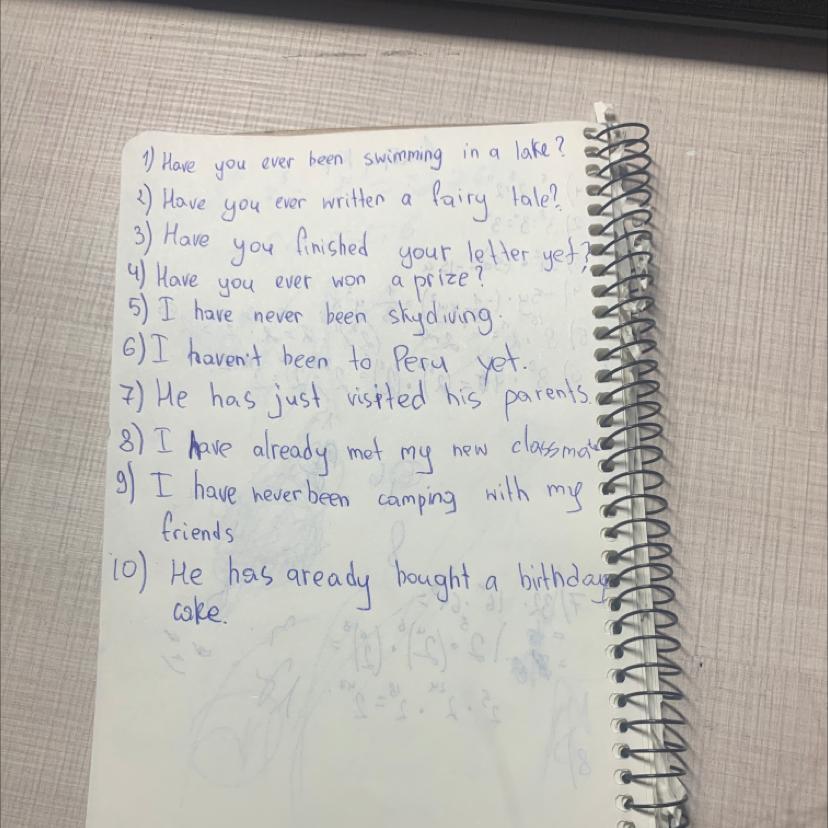 1) Have you ever been swimming in a lake?
2) Have you ever written a fairy tale?
3) Have you finished your letter yet?
4) Have you ever won a prize?
5) I have never been skydiving.
6) I haven't been to Peru yet.
7) He has just visited his parents.
8) I have already met my new classmate
9) I have never been camping with my
friends
10) He has aready bought a birthday
cake.